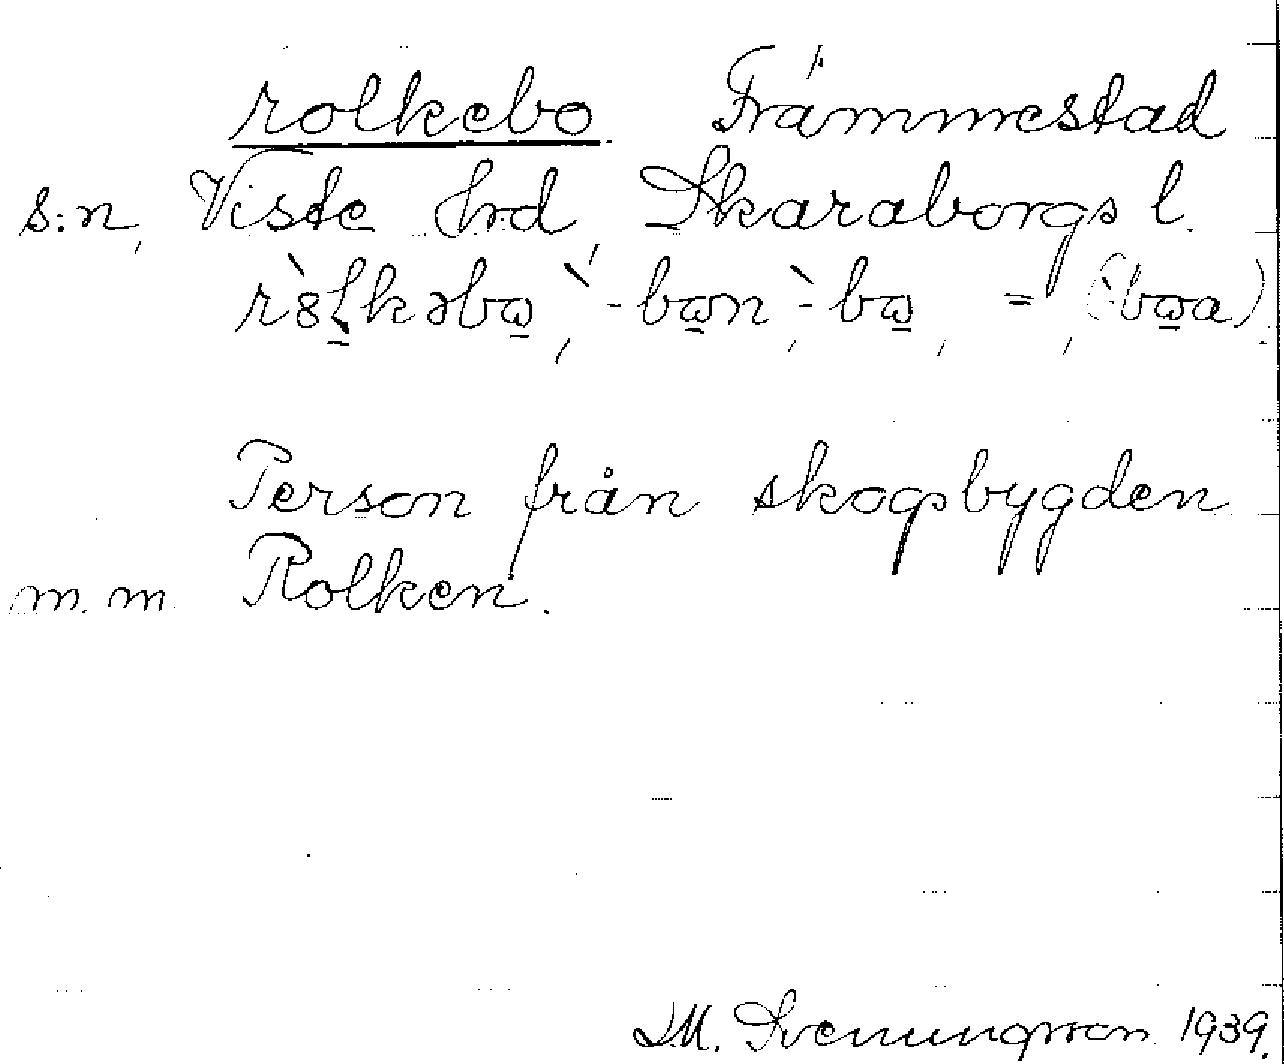 rolkebo Främmestad
s:n, Viste hrd, Skaraborgs l.
-bon, -bo, =, (-boa)
Person från skogsbygden
m.m. Rolken.
Svenungsson 1939.